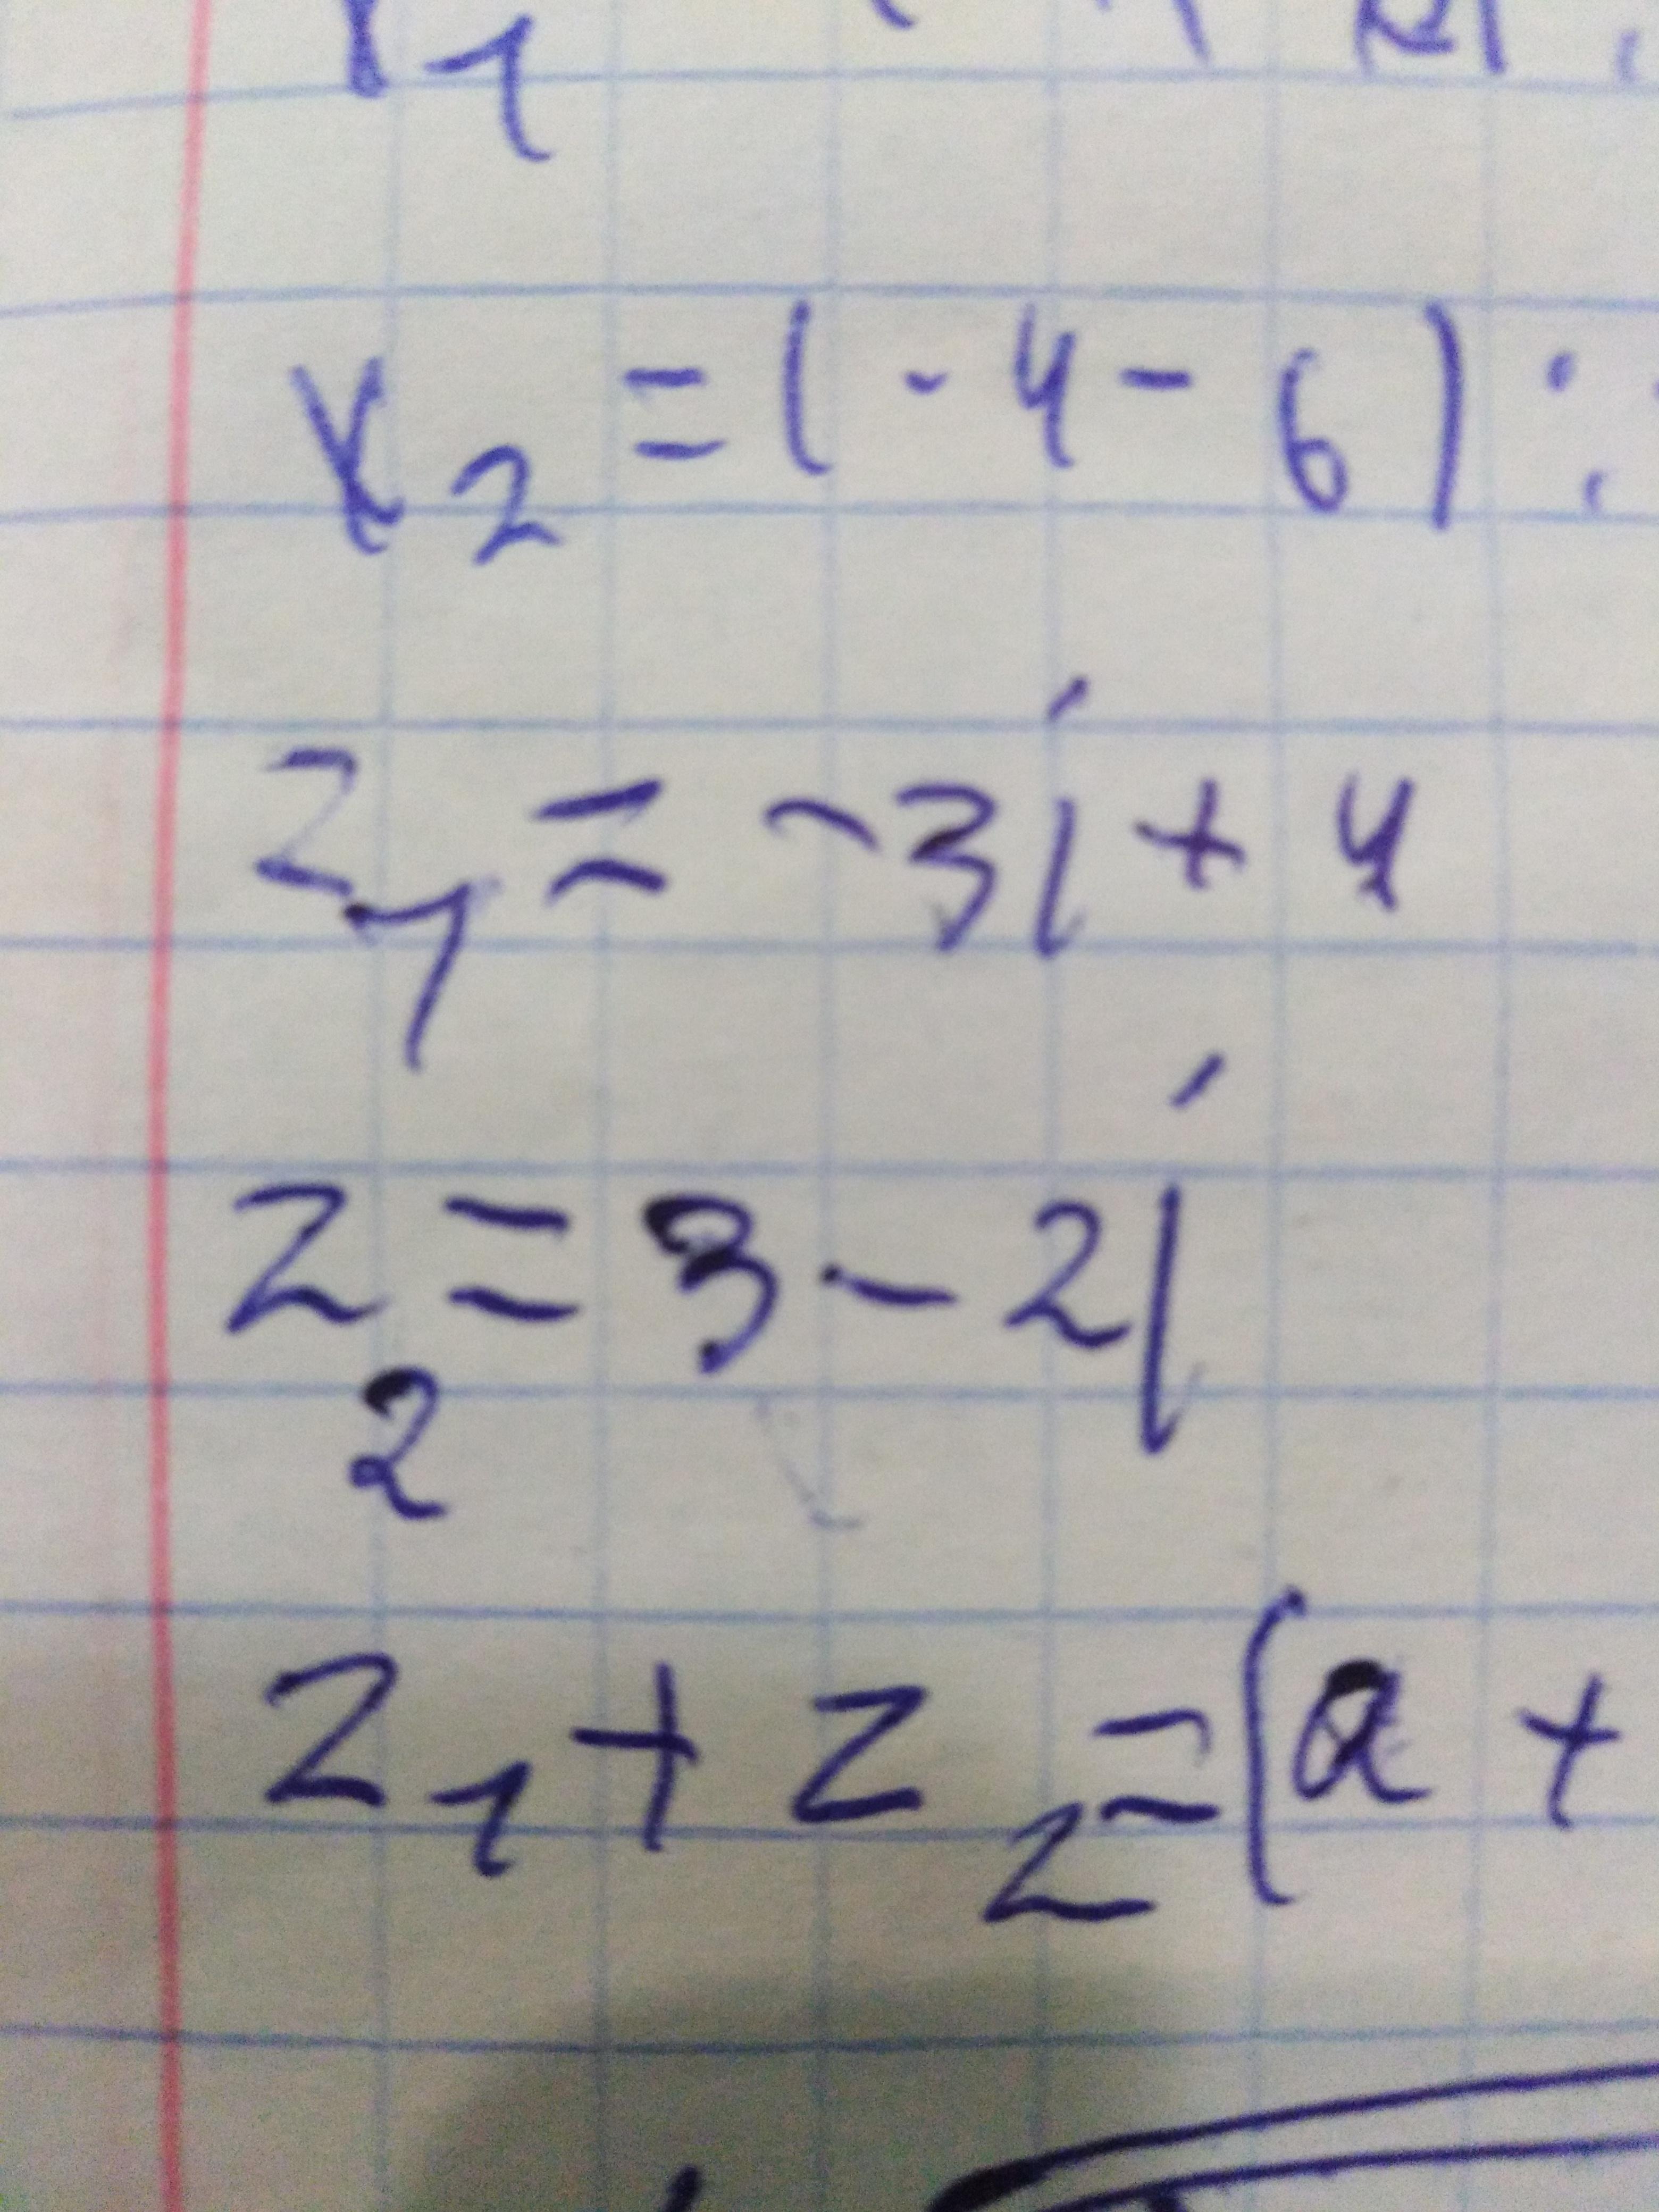 x₂ = (-4-6):
z₁ = -3i + 4
z₂ = 3 - 2i
z₁ + z₂ = (a +